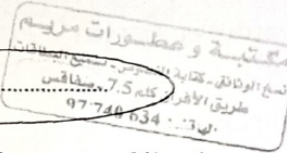 مكتبة و عطورات مريم
نسخ الوثائق - كتابة النصوص - تسفير البطاقات
طريق الأفران كلم 7.5 - صفاقس
الهاتف : 97 740 634